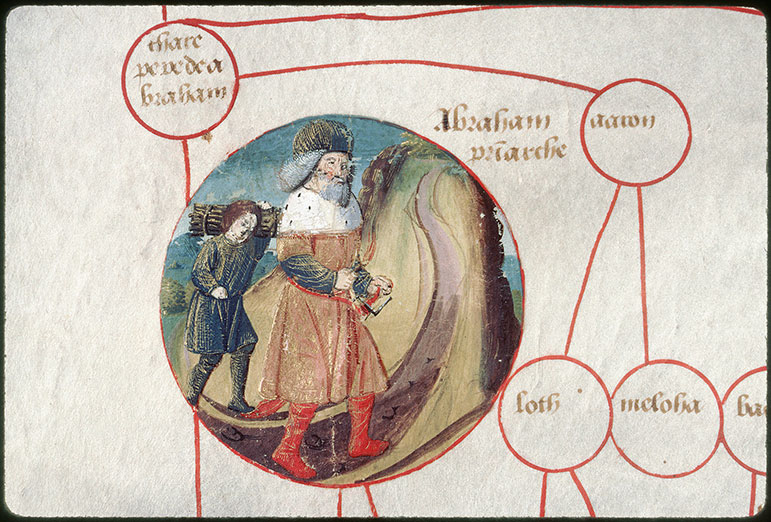 thare
pere de a
braham
Abraham
priarche
aaron
loth
melcha
ba